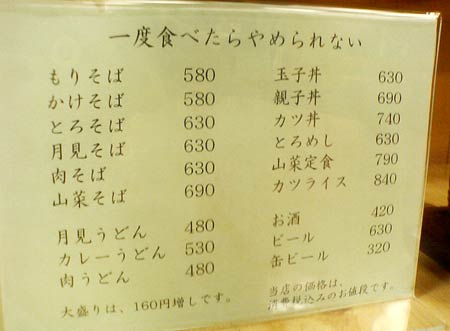 一度食べたらやめられない
もりそば 580
かけそば 580
とろそば 630
月見そば 630
肉そば 630
山菜そば 690
月見うどん 480
カレーうどん 530
肉うどん 480
大盛りは、160円増しです。
玉子丼 630
親子丼 690
カツ丼 740
とろめし 630
山菜定食 790
カツライス 840
お酒 420
ビール 630
缶ビール 320
当店の価格は、
消費税込みのお値段です。